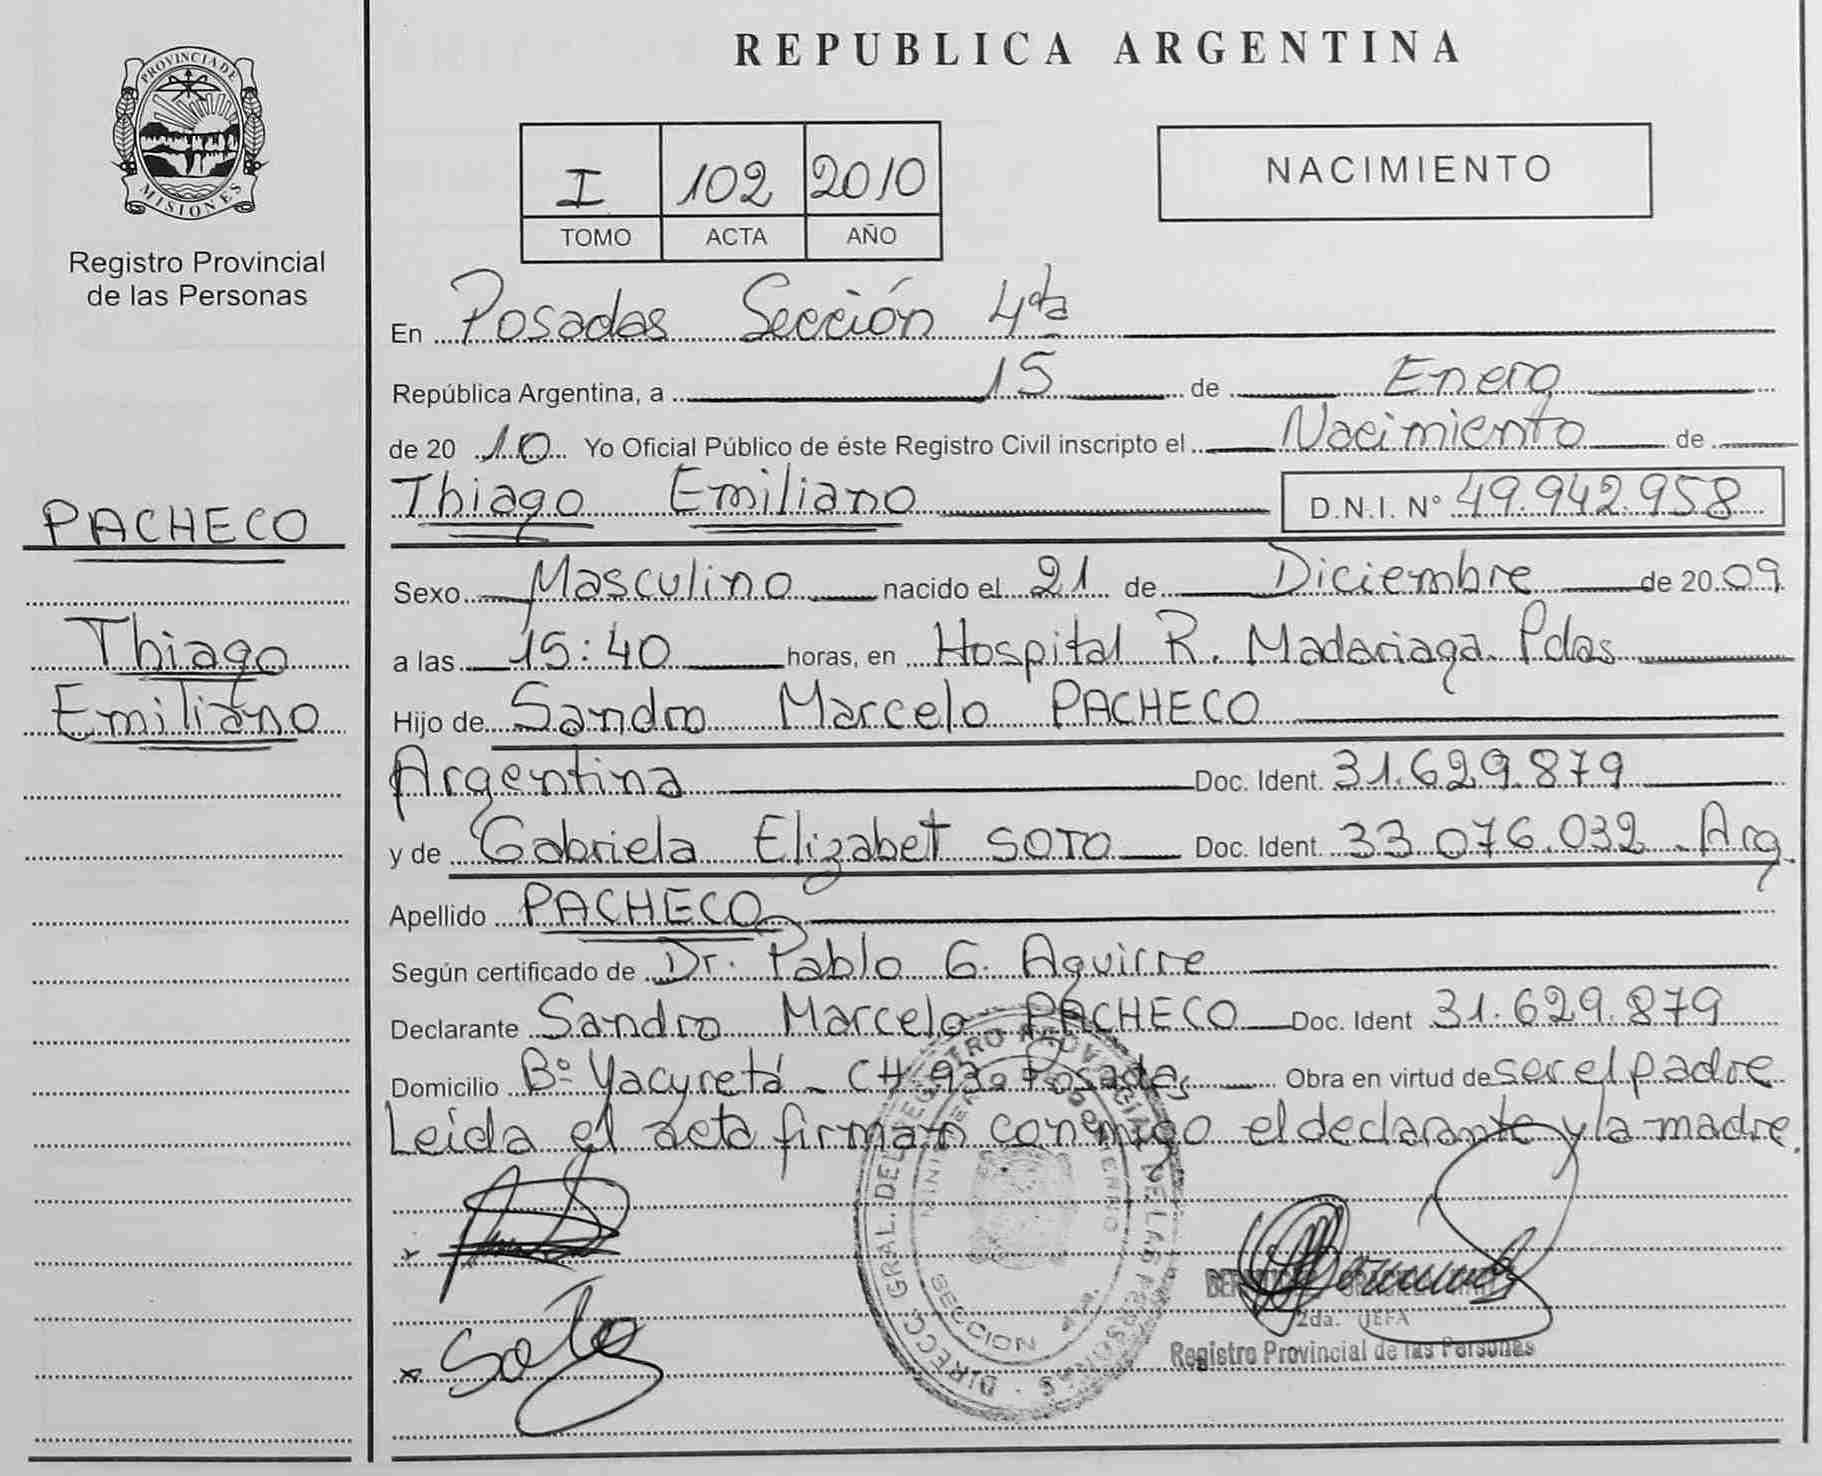 PROVINCIA DE
MISIONES
Registro Provincial
de las Personas
PACHECO
Thiago
Emiliano
REPUBLICA ARGENTINA
I 102 2010
TOMO ACTA AÑO
NACIMIENTO
En Posadas Sección 4ta
República Argentina, a 15 de Enero
de 20 10 Yo Oficial Público de éste Registro Civil inscripto el Nacimiento de
Thiago Emiliano D.N.I. N° 49.942.958
Sexo Masculino nacido el 21 de Diciembre de 20 09
a las 15:40 horas, en Hospital R. Madariaga. Pdas
Hijo de Sandro Marcelo PACHECO
Argentina Doc. Ident. 31.629.879
y de Gabriela Elizabet SOTO Doc. Ident. 33.076.032 - Arg.
Apellido PACHECO
Según certificado de Dr. Pablo G. Aguirre
Declarante Sandro Marcelo PACHECO Doc. Ident 31.629.879
Domicilio Bº Yacyretá - CH 93 Posadas Obra en virtud de ser el padre
Leida el acta firman conmigo el declarante y la madre.
DIRECC. GRAL. DEL REGISTRO PROVINCIAL DE LAS PERSONAS
SECCION 4ta.
Soto
2da. JEFA
Registro Provincial de las Personas